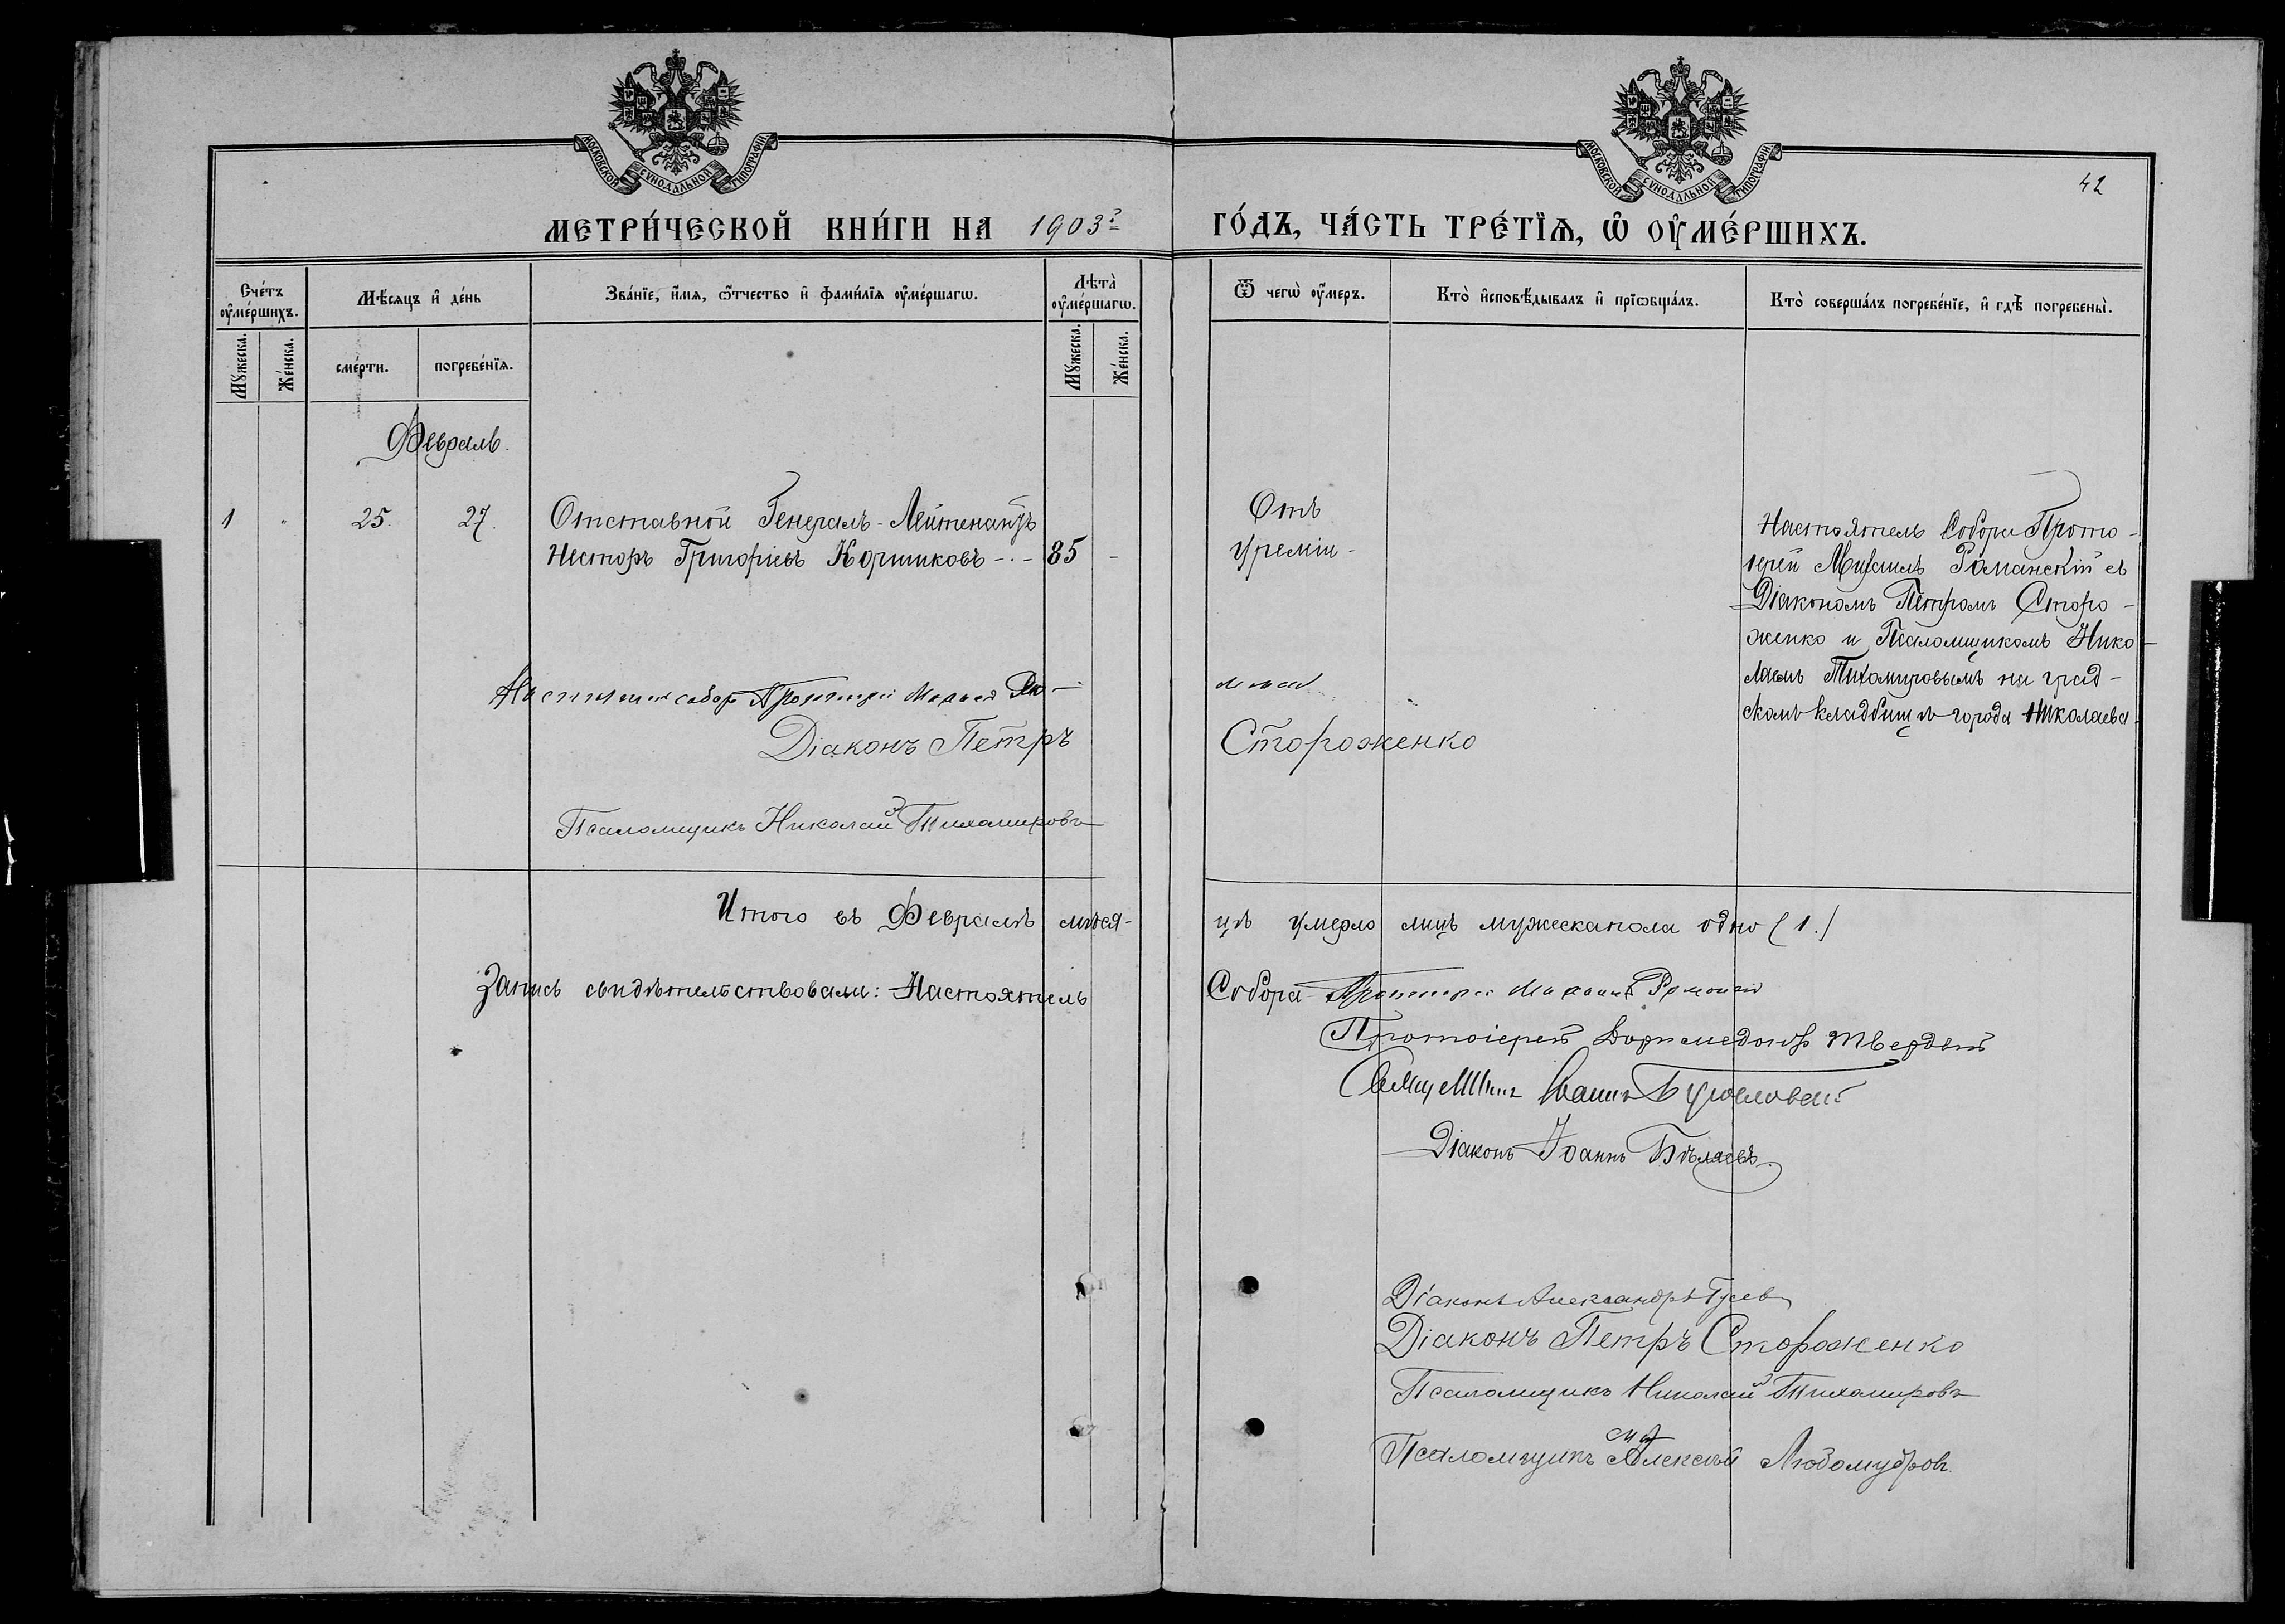 МОСКОВСКОЙ СѴНОДАЛЬНОЙ ТИПОГРАФІИ
МОСКОВСКОЙ СѴНОДАЛЬНОЙ ТИПОГРАФІИ
42
МЕТРИ́ЧЕСКОЙ КНИ́ГИ НА 1903й ГО́ДЪ, ЧА́СТЬ ТРЕ́ТЇѦ, Ѡ҆ ОУ҆МЕ́РШИХЪ.
Сче́тъ оу҆ме́ршихъ.
Мѣ́сяцъ и҆ де́нь
Зва́нїе, и҆́мя, ѻ҆́тчество и҆ фами́лїя оу҆ме́ршагѡ.
Лѣта̀ оу҆ме́ршагѡ.
Ѿ чегѡ̀ оу҆́меръ.
Кто̀ и҆сповѣ́дывалъ и҆ прїѡбща́лъ.
Кто̀ соверша́лъ погребе́нїе, и҆ гдѣ̀ погребены̀.
Мꙋ́жеска.
Же́нска.
сме́рти.
погребе́нїя.
Мꙋ́жеска.
Же́нска.
Февраль.
1 " 25. 27.
Отставной Генералъ-Лейтенантъ
Несторъ Григоріевъ Коршиковъ - . - 85 -
Отъ
уреміи -
Настоятель Собора Прото-
іерей Михаилъ Романскій съ
Діакономъ Петромъ Сторо-
женко и Псаломщикомъ Нико-
лаемъ Тихомировымъ на град-
скомъ кладбищѣ города Николаева.
Настоятель собора Протоіерей Михаилъ Ро-
Діаконъ Петръ Стороженко
Псаломщикъ Николай Тихомировъ
Итого въ Февралѣ мѣся-
цѣ умерло лицъ мужеска пола одно (1.)
Запись свидѣтельствовали: Настоятель
Собора Протоіерей Михаилъ Романскій
Протоіерей
Іоаннъ
Діаконъ Іоаннъ Бѣляевъ.
Діаконъ Александръ Гусевъ
Діаконъ Петръ Стороженко
Псаломщикъ Николай Тихомировъ
Псаломщикъ Алексѣй Любомудровъ.